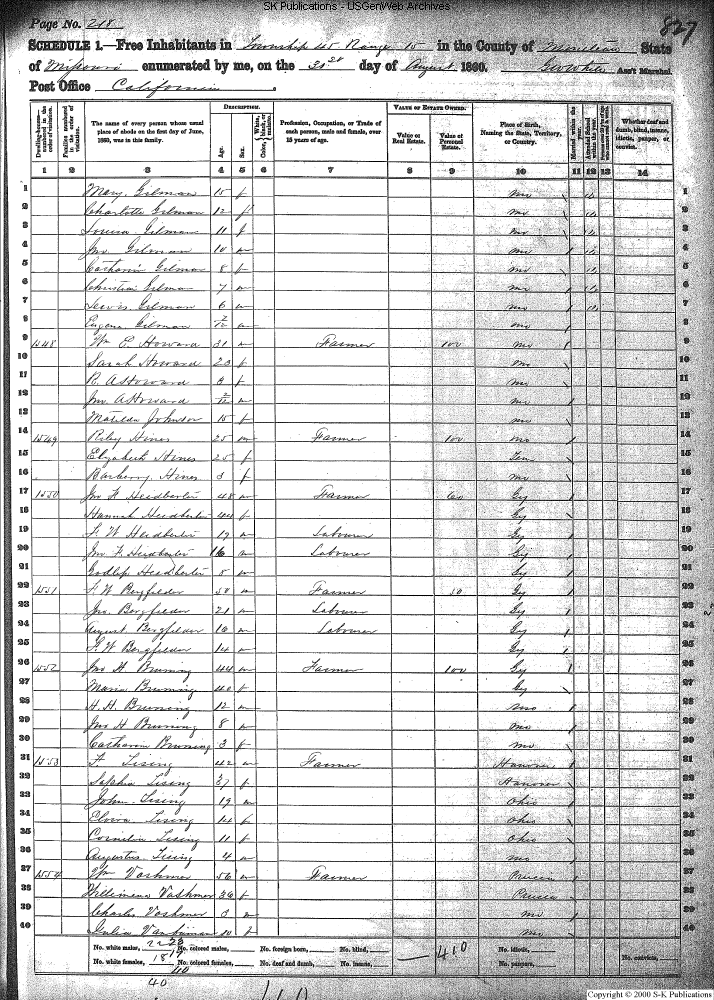 SK Publications - USGenWeb Archives
Page No. 218
827
SCHEDULE 1.—Free Inhabitants in Township 45 Range 15 in the County of Moniteau State
of Missouri enumerated by me, on the day of August 1860. Geo White Ass't Marshal.
Post Office California
Dwelling-house— numbered in the order of visitation.
Families numbered in the order of visitation.
The name of every person whose usual place of abode on the first day of June, 1860, was in this family.
DESCRIPTION.
Age.
Sex.
Color, White, black, or mulatto.
Profession, Occupation, or Trade of each person, male and female, over 15 years of age.
VALUE OF ESTATE OWNED.
Value of Real Estate.
Value of Personal Estate.
Place of Birth, Naming the State, Territory, or Country.
Married within the year.
Attended School within the year.
Whether deaf and dumb, blind, insane, idiotic, pauper, or convict.
1 2 3 4 5 6 7 8 9 10 11 12 13 14
1 Mary Gilman 15 f Mo 1
2 Charlotte Gilman 12 f Mo 2
3 Louisa Gilman 11 f Mo 3
4 Jno Gilman 10 m Mo 4
5 Catharin Gilman 8 f Mo 5
6 Christian Gilman 7 m Mo 6
7 Lewis Gilman 6 m Mo 7
8 Eugene Gilman m Mo 8
9 1548 Wm E. Howard 31 m Farmer 100 Mo 9
10 Sarah Howard 23 f Mo 10
11 R. A Howard f Mo 11
12 Jno. A Howard m Mo 12
13 Matilda Johnson 15 f Mo 13
14 1549 Riley Hines 25 m Farmer 100 Mo 14
15 Elizabeth Hines 25 f Ten 15
16 Hines 3 f Mo 16
17 1550 Jno F Heidberter 48 m Farmer Gy 17
18 Hannah Heidberter 44 f Gy 18
19 F. W Heidberter 19 m Labourer Gy 19
20 Jno. F. Heidberter 16 m Labourer Gy 20
21 Heidberter 8 m Gy 21
22 1551 F. W Bergfielder 50 m Farmer 50 Gy 22
23 Jno. Bergfielder 21 m Labourer Gy 23
24 August Bergfielder 16 m Labourer Gy 24
25 F. W Bergfielder 14 m Gy 25
26 1552 Jno H Bruning 44 m Farmer 100 Gy 26
27 Maria Bruning 40 f Gy 27
28 H. H. Bruning 12 m Mo 28
29 Jno H Bruning 8 m Mo 29
30 Catharon Bruning 3 f Mo 30
31 1553 F. Lising 42 m Farmer Hanover 31
32 Sophia Lising 37 f Hanover 32
33 John Lising 19 m Ohio 33
34 Lising 14 f Ohio 34
35 Cornelia Lising 11 f Ohio 35
36 Augustus Lising 4 m Mo 36
37 1554 Wm Voshmer 56 m Farmer Prussia 37
38 Willimena Voshmer 36 f Prussia 38
39 Charles Voshmer 3 m Mo 39
40 Julia 10 f Mo 40
No. white males, No. colored males, No. foreign born, No. blind, — 410 No. idiotic, No. convicts,
No. white females, No. colored females, No. deaf and dumb, No. insane, No. paupers,
40
Copyright © 2000 S-K Publications